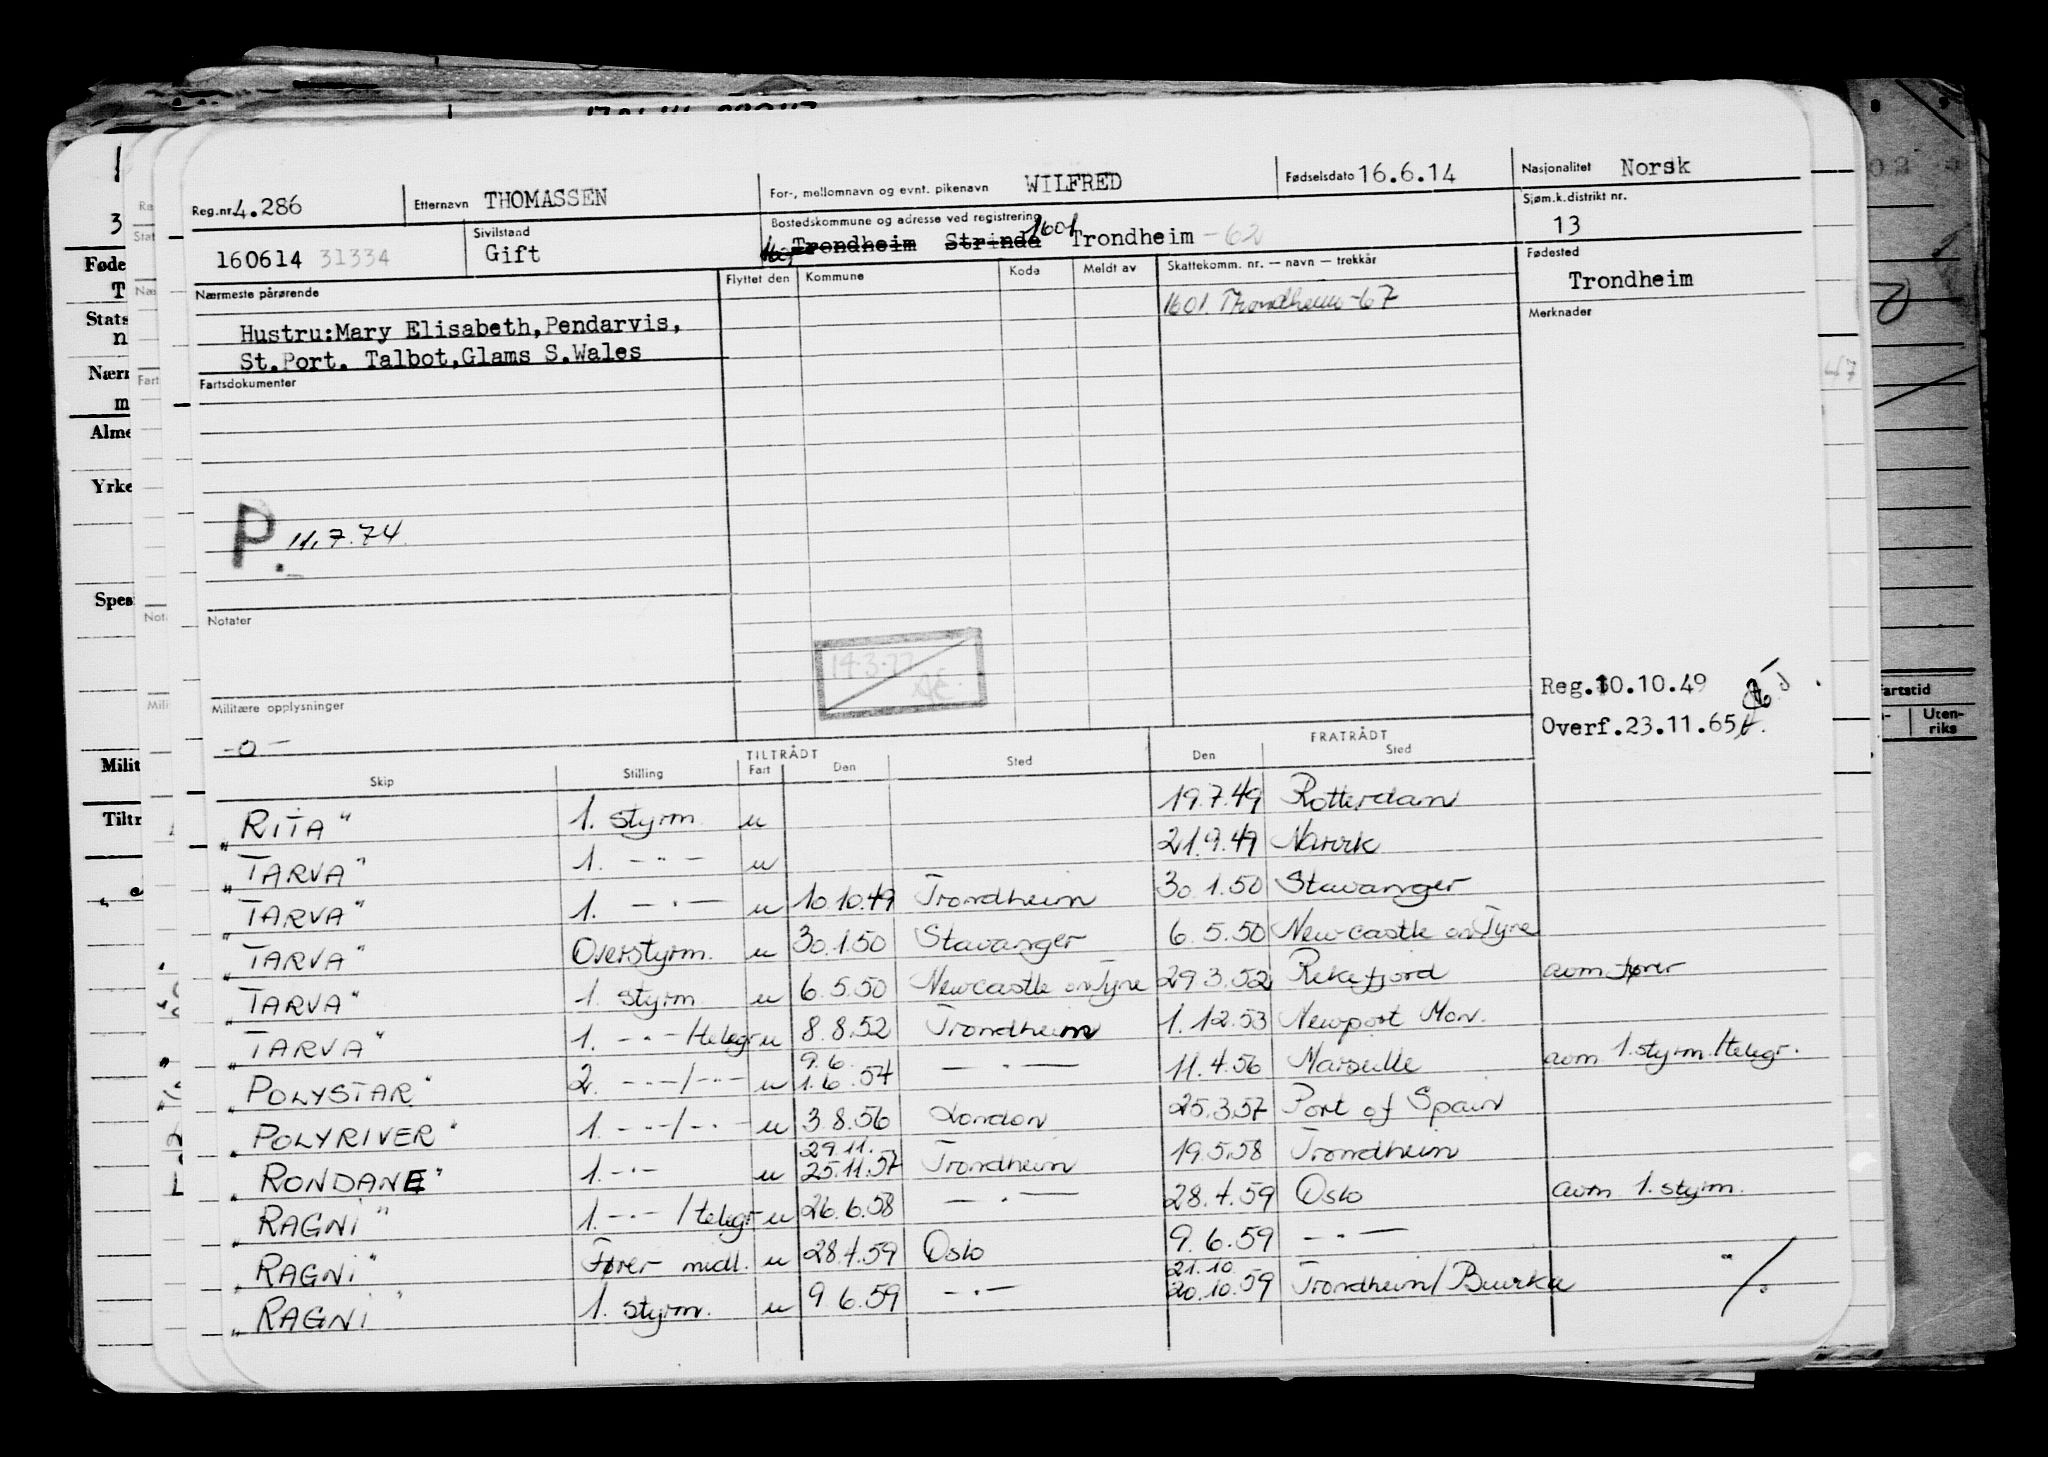 Reg.nr. 4.286 Etternavn THOMASSEN For-, mellomnavn og evnt. pikenavn WILFRED Fødselsdato 16.6.14 Nasjonalitet Norsk
160614 31334 Sivilstand Gift Bostedskommune og adresse ved registrering Trondheim Strinda 1601 Trondheim -62 Sjøm.k.distrikt nr. 13
Nærmeste pårørende Flyttet den Kommune Kode Meldt av Skattekomm. nr. — navn — trekkår Fødested Trondheim
1601 Trondheim -67 Merknader
Hustru:Mary Elisabeth,Pendarvis,
St.Port. Talbot,Glams S.Wales
Fartsdokumenter
P. 11.7.74.
Notater
14.3.77
Militære opplysninger
-0-
Reg.10.10.49
Overf.23.11.65
TILTRÅDT FRATRÅDT
Skip Stilling Fart Den Sted Den Sted
„RITA" 1. styrm. u 19.7.49 Rotterdam
„TARVA" 1. -"- u 21.9.49 Narvik
„TARVA" 1. -"- u 10.10.49 Trondheim 30.1.50 Stavanger
„TARVA" Overstyrm. u 30.1.50 Stavanger 6.5.50 Newcastle on Tyne
„TARVA" 1. styrm. u 6.5.50 Newcastle on Tyne 29.3.52 Rekefjord avm. fører
„TARVA" 1. -"-/telegr u 8.8.52 Trondheim 1.12.53 Newport Mon.
„POLYSTAR" 2. -"-/-"- u 9.6. 1.6.54 -"- 11.4.56 Marseille avm. 1.styrm./telegr.
„POLYRIVER" 1. -"-/-"- u 3.8.56 London 25.3.57 Port of Spain
„RONDANE" 1. -"- u 29.11. 25.11.57 Trondheim 19.5.58 Trondheim
„RAGNI" 1. -"-/telegr u 26.6.58 -"- 28.4.59 Oslo avm 1.styrm.
„RAGNI" Fører midl. u 28.4.59 Oslo 9.6.59 -"-
„RAGNI" 1. styrm. u 9.6.59 -"- 21.10. 20.10.59 Trondheim/